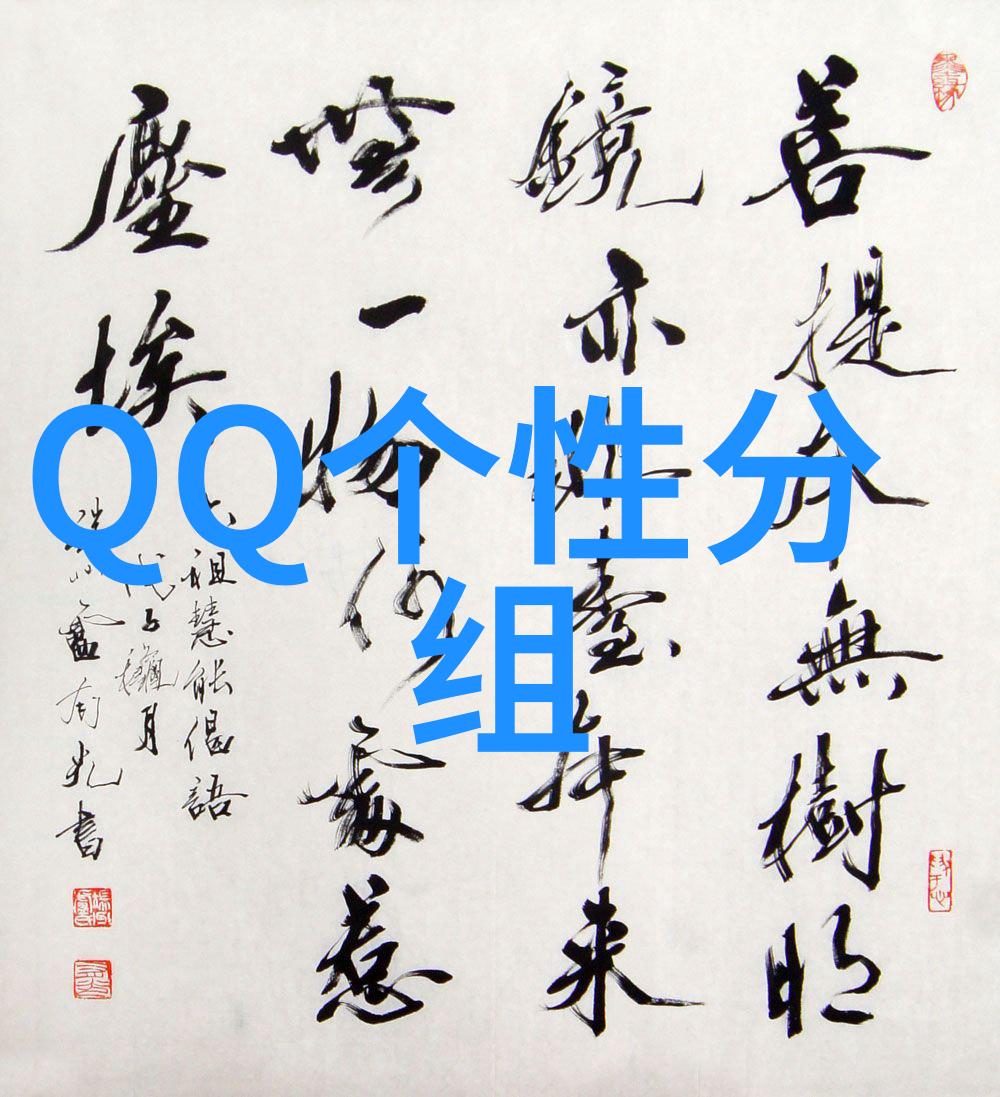 QQ个性分
组
菩提本無樹明
鏡亦非臺本来
無一物何處惹
塵埃
六祖慧能偈語
月
有光書